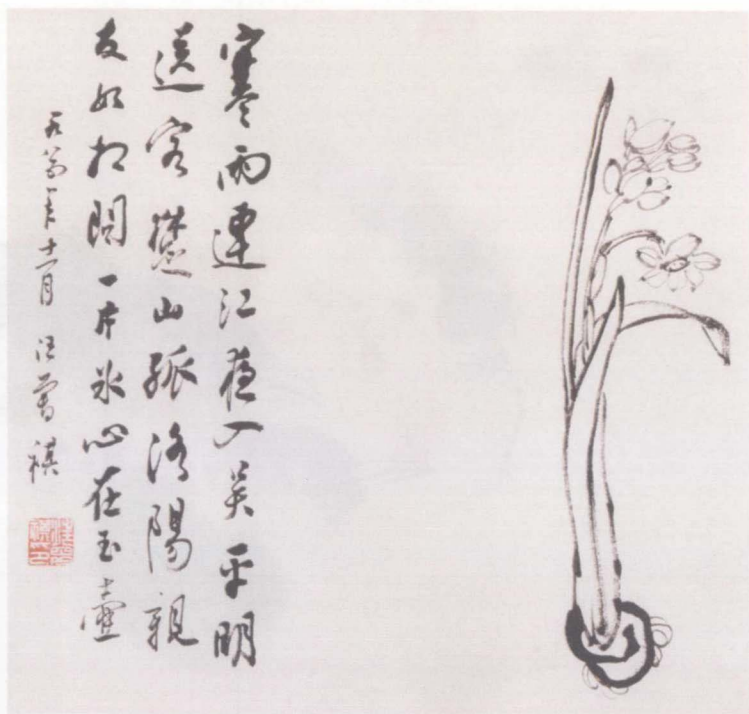 寒雨連江夜入吳平明
送客楚山孤洛陽親
友如相問一片氷心在玉壺
年十一月 汪曾祺